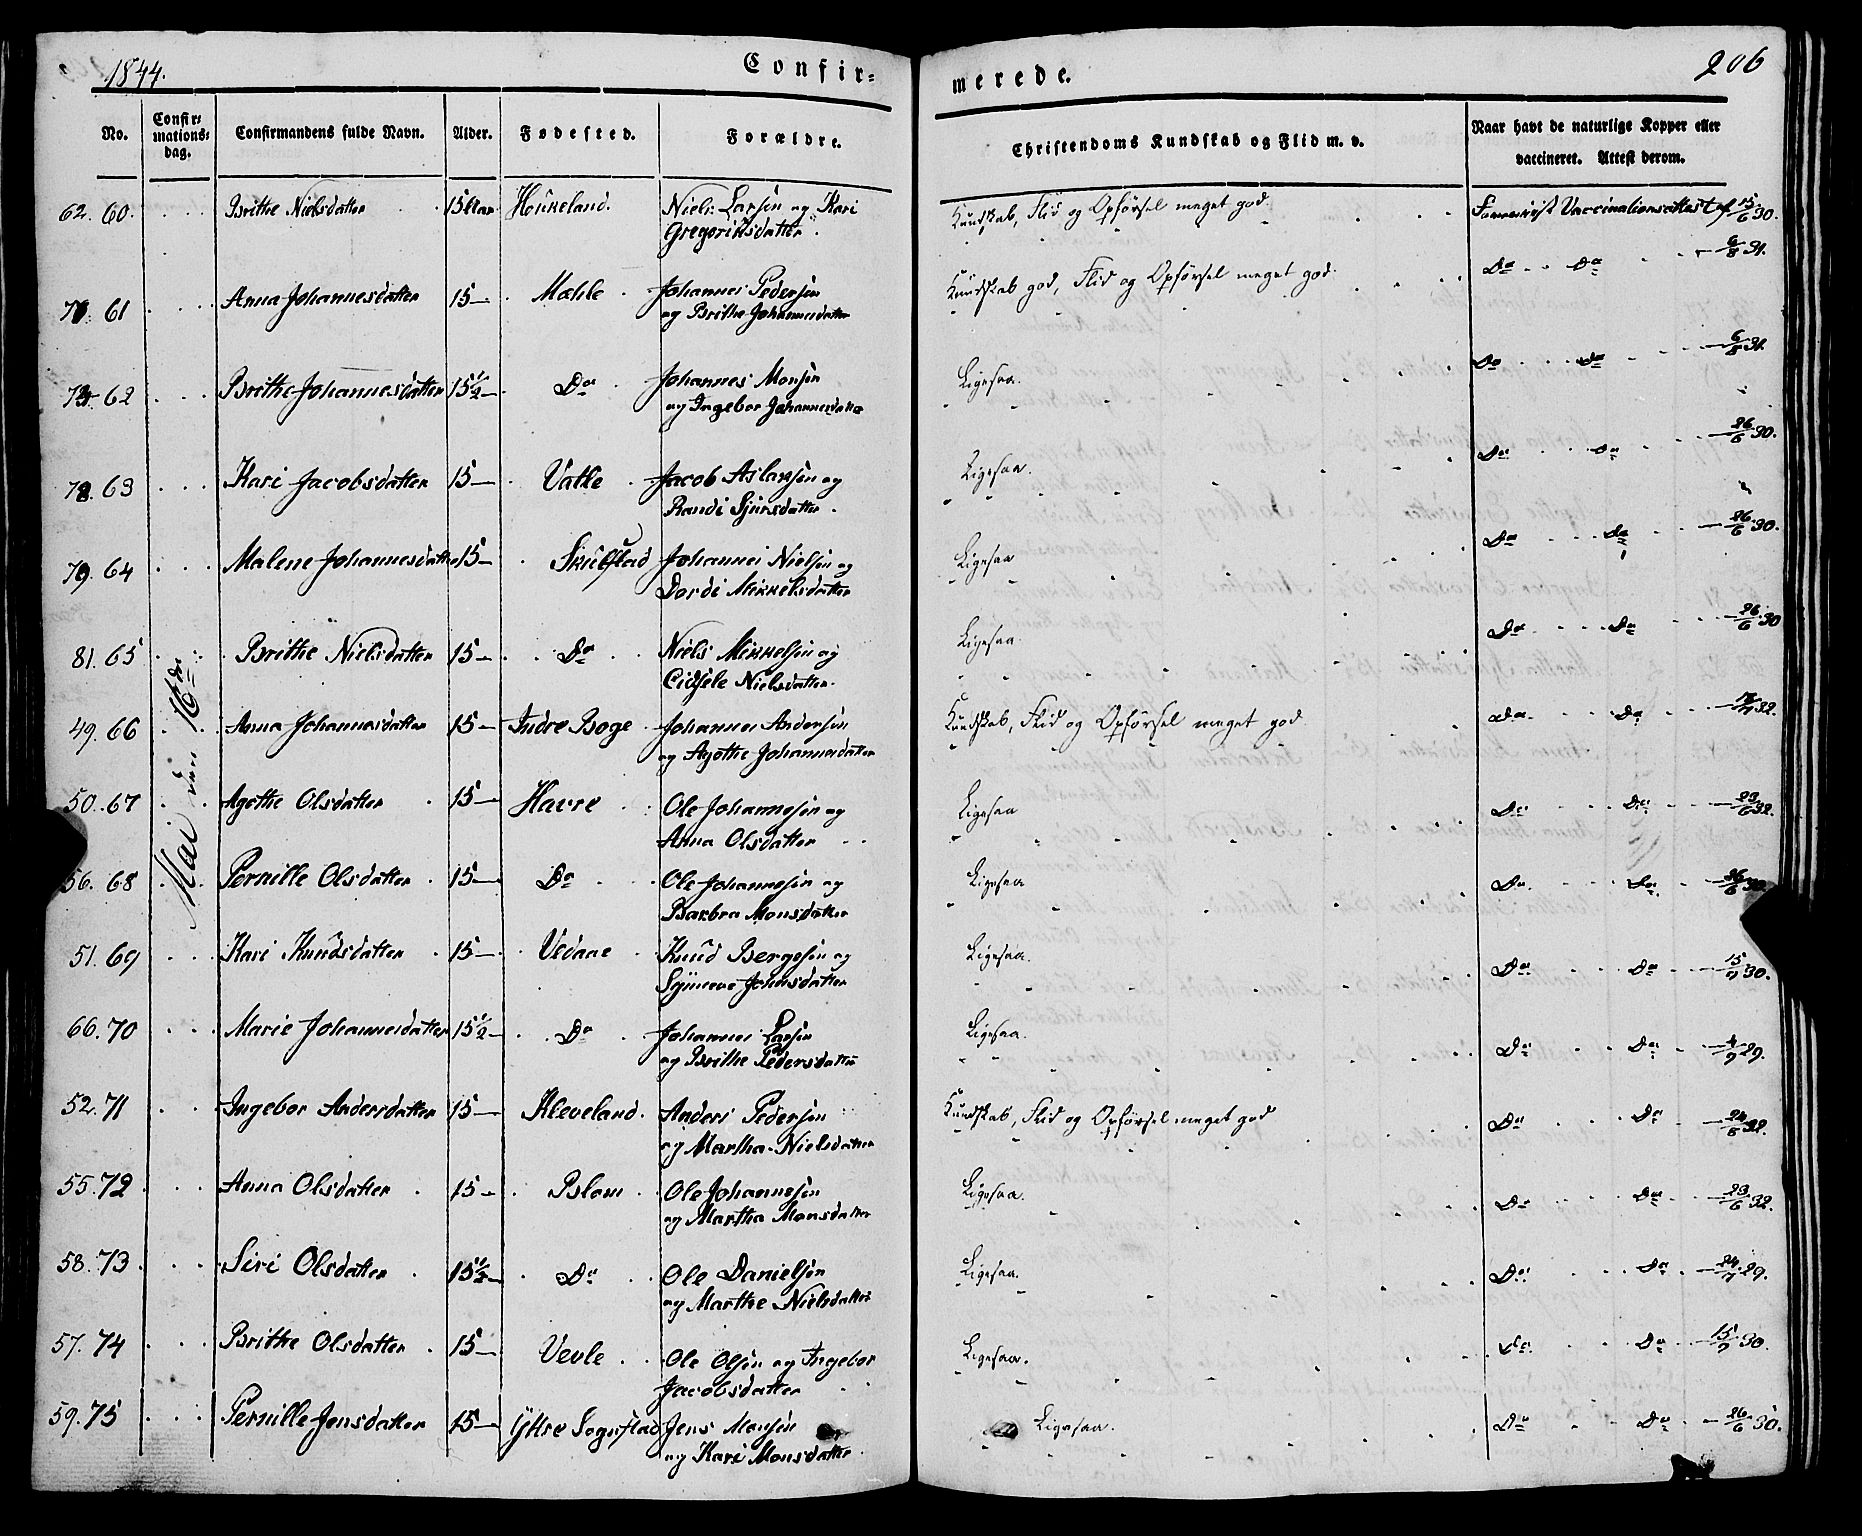 1844.
Confir-
merede.
206
No.
Confir-
mations-
dag.
Confirmandens fulde Navn.
Alder.
Fødested.
Forældre.
Christendoms Kundskab og Flid m. v.
Naar havt de naturlige Kopper eller
vaccineret. Attest derom.
Mai den 16de
62. 60. Brithe Nielsdatter 15 Aar Houkeland. Niels Larsen og Kari Kundskab, Flid og Opførsel meget god. Foreviist Vaccinationsattest af 15/6 30.
Gregoriusdatter.
61 Anna Johannesdatter 15 — Mæhle Johannes Pedersen Kundskab god, Flid og Opførsel meget god. Do Do — 6/8 31.
og Brithe Johannesdatter
62 Brithe Johannesdatter 15 1/2 — Do Johannes Monsen Ligesaa. Do Do — 6/8 31.
og Ingebor Johannesdatter
78. 63 Kari Jacobsdatter 15 — Vatle Jacob Aslaksen og Ligesaa. Do Do — 26/6 30.
Randi Sjursdatter.
79. 64 Malene Johannesdatter 15 — Skulstad Johannes Nielsen og Ligesaa Do Do — 26/6 30.
Dordi Mikkelsdatter
81. 65 Brithe Nielsdatter 15 — Do Niels Mikkelsen og Ligesaa. Do Do — 26/6 30
Cidsele Nielsdatter.
49. 66 Anna Johannesdatter 15 — Indre Boge Johannes Andersen Kundskab, Flid og Opførsel meget god. Do Do 32.
og Agothe Johannesdatter
50. 67 Agothe Olsdatter 15 — Havre Ole Johannesen og Ligesaa Do Do — 23/6 32.
Anna Olsdatter
56. 68 Pernille Olsdatter 15 — Do Ole Johannesen og Ligesaa Do Do
Barbra Monsdatter
51. 69 Kari Knudsdatter 15 — Vedaae Knud Bergesen og Ligesaa. Do Do — 15/7 30.
Synneve Johnsdatter
66. 70 Marie Johannesdatter 15 1/2 — Do Johannes Larsen Ligesaa. Do Do 29.
og Brithe Pedersdatter
52. 71 Ingebor Andersdatter 15 — Kleveland. Anders Pedersen Kundskab, Flid og Opførsel meget god Do Do — 24/6 32.
og Martha Nielsdatter
55. 72 Anna Olsdatter 15 — Blom Ole Johannesen Ligesaa. Do Do — 23/6 32.
og Martha Monsdatter
58. 73 Siri Olsdatter 15 1/2 — Do Ole Danielsen Ligesaa. Do Do — 24/7 29.
og Marthe Nielsdatter
57. 74 Brithe Olsdatter 15 — Vevle Ole Olsen og Ingebor Ligesaa. Do Do — 15/7 30.
Jacobsdatter
59. 75 Pernille Jensdatter 15 — Yttre Sognstad Jens Monsen Ligesaa. Do Do — 26/6 30.
og Kari Monsdatter